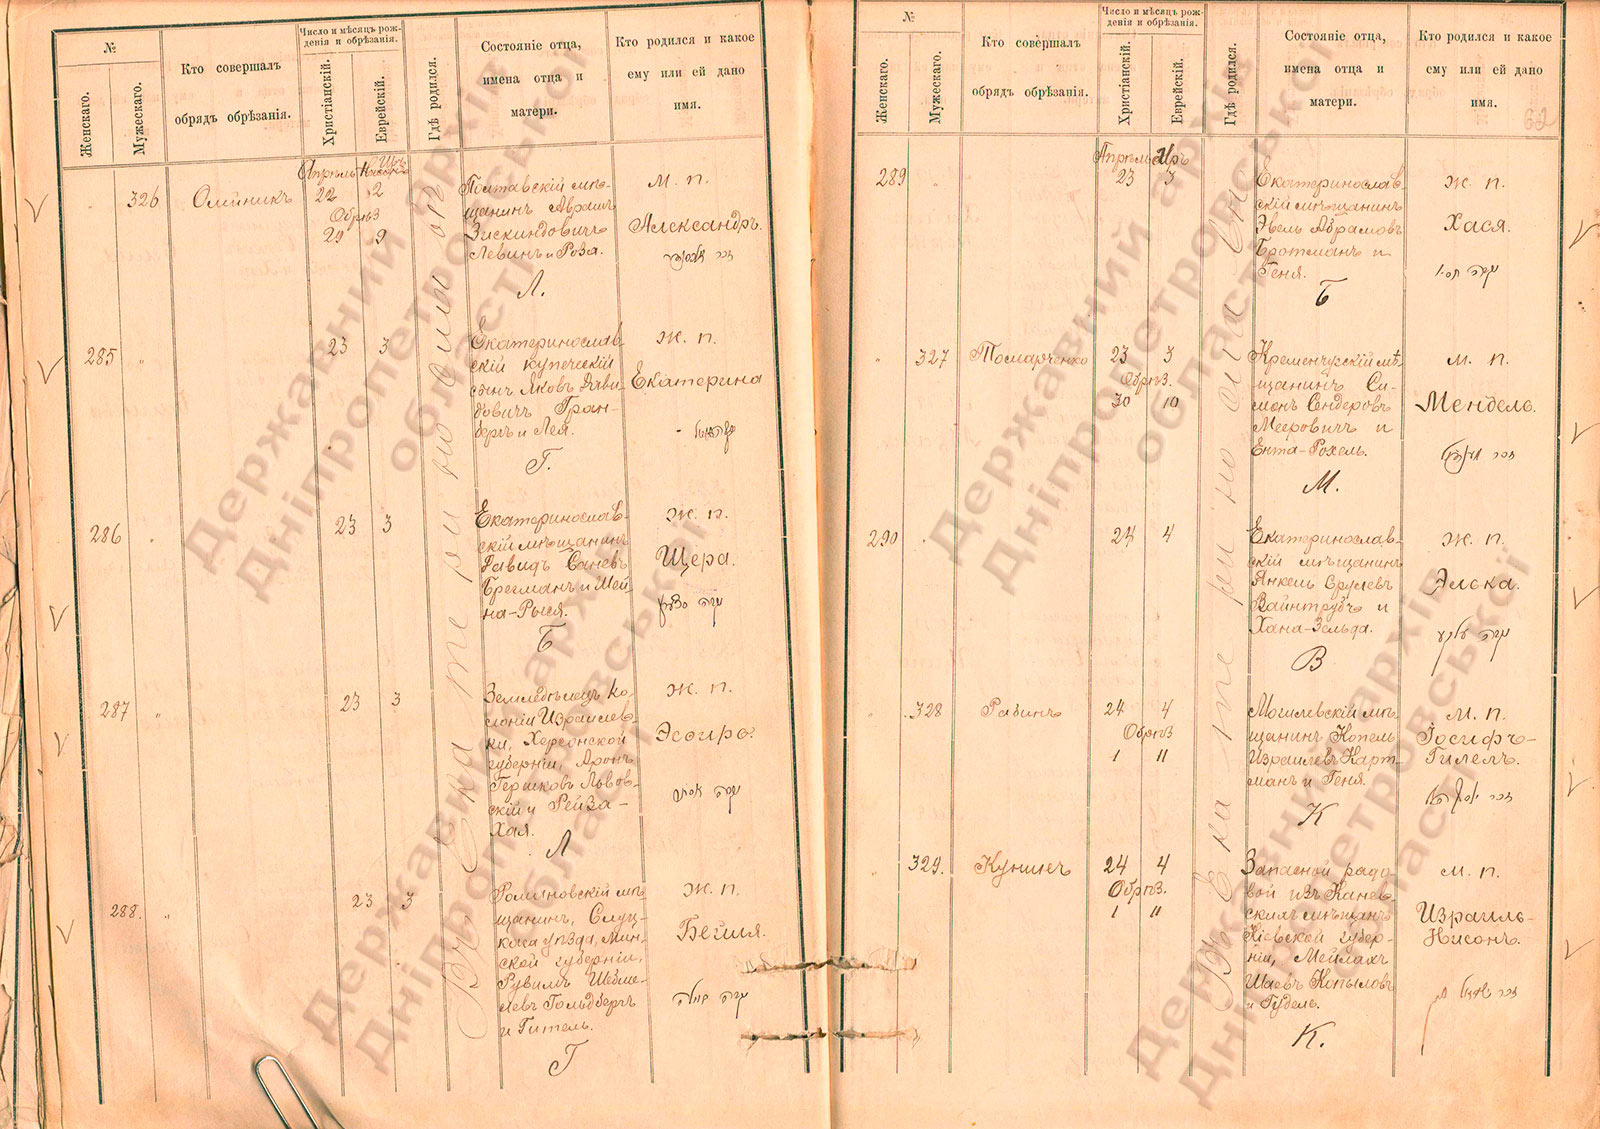 №
Женскаго.
Мужескаго.
Кто совершалъ
обрядъ обрѣзанія.
Число и мѣсяцъ рож-
денія и обрѣзанія.
Христіанскій.
Еврейскій.
Гдѣ родился.
Состояніе отца,
имена отца и
матери.
Кто родился и какое
ему или ей дано
имя.
Въ Екатеринославѣ
Апрѣль
326 Олейникъ 22 2
Обрѣз
29 9
Полтавскій мѣ-
щанинъ Абрамъ
Зискиндовичъ
Левинъ и Роза.
Л.
м. п.
Александръ.
285 " 23 3
Екатеринослав-
скій купеческій
сынъ Яковъ Дави-
довичъ Гран-
бергъ и Лея.
Г.
Ж. п.
Екатерина
286 " 23 3
Екатеринослав-
скій мѣщанинъ
Давидъ
Брегманъ и Шей-
на-Рыся.
Б
Ж. п.
287 " 23 3
Земледѣлецъ ко-
лоніи Израилев-
ки, Херсонской
губерніи, Аронъ
Гершковъ Львов-
скій и Рейза-
Хая.
Л
Ж. п.
Эсѳирь.
288. " 23 3
мѣ-
щанинъ, Слуц-
каго уѣзда, Мин-
ской губерніи,
Рувимъ
Гольдбергъ
и Гитель.
Г
Ж. п.
Бейля.
№
Женскаго.
Мужескаго.
Кто совершалъ
обрядъ обрѣзанія.
Число и мѣсяцъ рож-
денія и обрѣзанія.
Христіанскій.
Еврейскій.
Гдѣ родился.
Состояніе отца,
имена отца и
матери.
Кто родился и какое
ему или ей дано
имя.
62
Въ Екатеринославѣ
Апрѣль Иръ
289 " 23 3
Екатеринослав-
скій мѣщанинъ
Эвель Абрамовъ
Бротманъ и
Геня.
Б
Ж. п.
Хася.
" 327 23 3
Обрѣз.
30 10
Кременчугскій мѣ-
щанинъ Си-
монъ Сендеровъ
Мееровичъ и
Ента-Рохель.
М.
м. п.
Мендель.
290 " 24 4
Екатеринослав-
скій мѣщанинъ
Янкель Срулевъ
Вайнтрубъ и
Хана-Зельда.
В
Ж. п.
Элька.
" 328 Рабинъ 24 4
Обрѣз
1 11
Могилевскій мѣ-
щанинъ Копель
Израилевъ Карт-
манъ и Геня.
К
м. п.
Іосифъ-
Гилель.
329. Кунинъ 24 4
Обрѣз.
1 11
Запасной рядо-
вой изъ Канев-
скихъ мѣщанъ
Кіевской губер-
ніи, Мейлахъ
Шаевъ Копыловъ
и Гудель.
К.
м. п.
Израиль-
Нисонъ.
Державний архів
Дніпропетровської
області